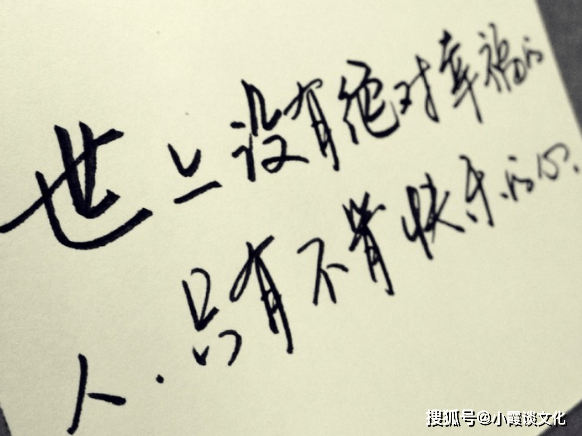 世上没有绝对幸福的
人.只有不肯快乐的心.
搜狐号@小霞谈文化